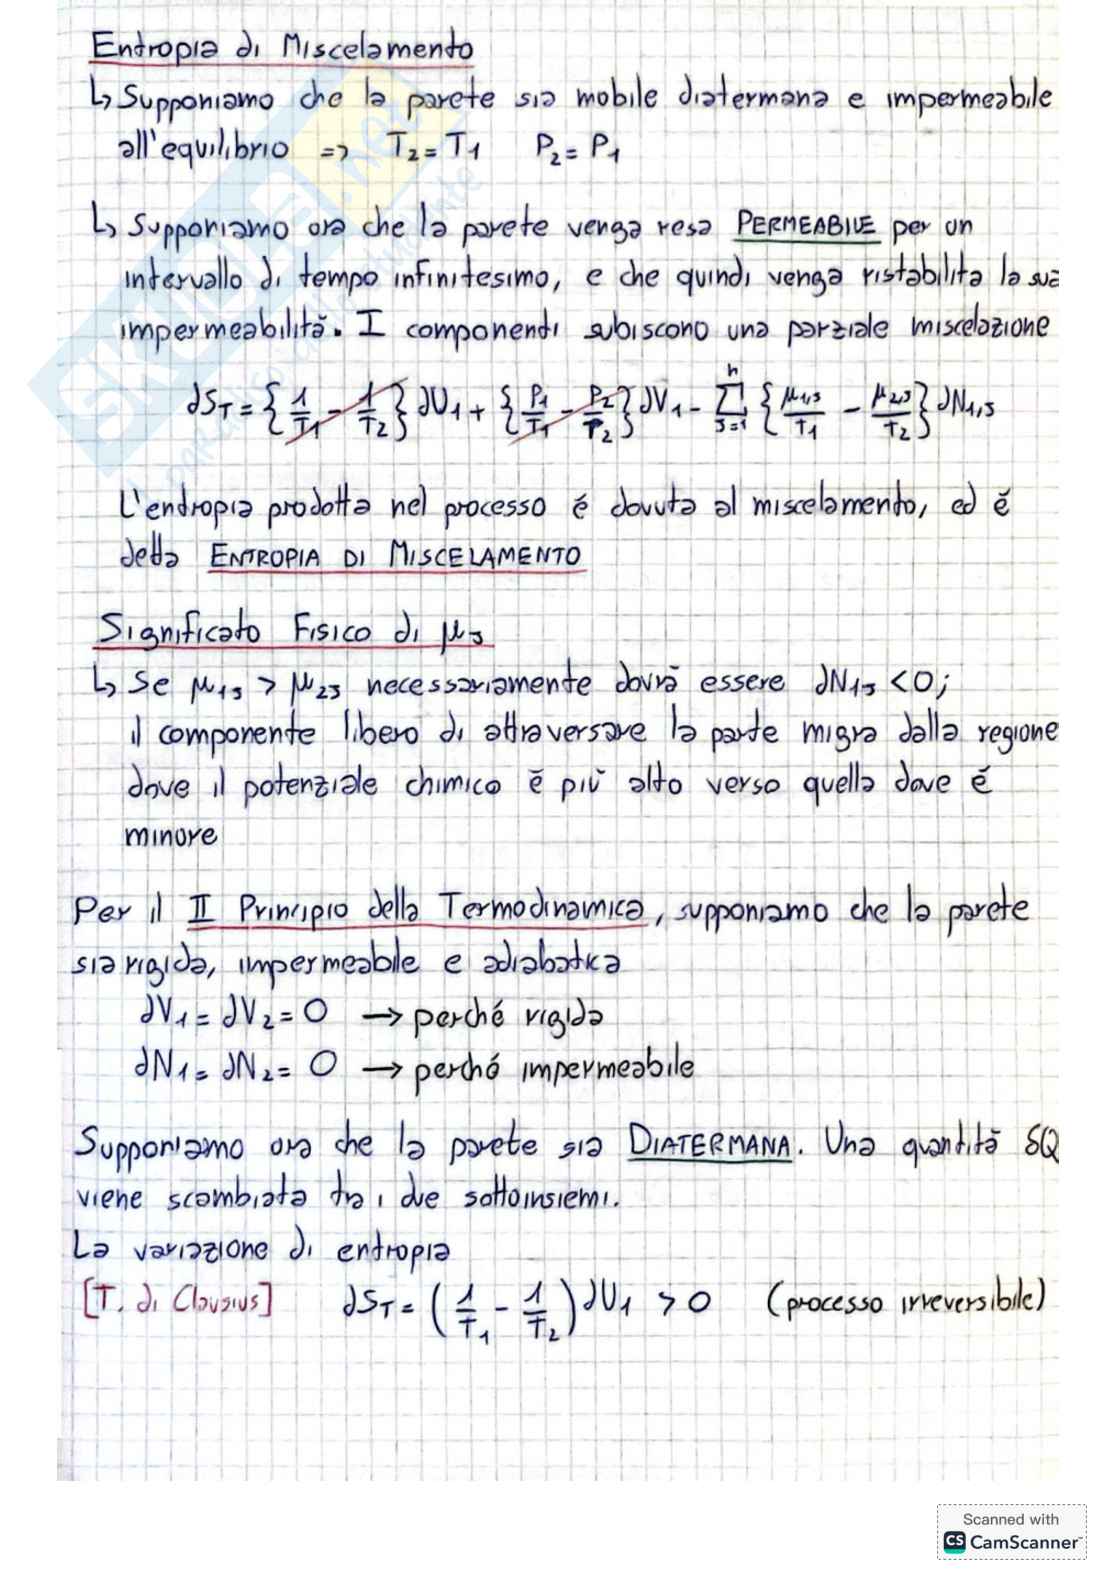 Entropia di Miscelamento
↳ Supponiamo che la parete sia mobile diatermana e impermeabile
all'equilibrio => T₂ = T₁ P₂ = P₁
↳ Supponiamo ora che la parete venga resa PERMEABILE per un
intervallo di tempo infinitesimo, e che quindi venga ristabilita la sua
impermeabilità. I componenti subiscono una parziale miscelazione
dS_T = {1/T₁ - 1/T₂} dU₁ + {P₁/T₁ - P₂/T₂} dV₁ - Σ_{J=1}^{n} {μ₁,J/T₁ - μ₂,J/T₂} dN₁,J
L'entropia prodotta nel processo é dovuta al miscelamento, ed é
detta ENTROPIA DI MISCELAMENTO
Significato Fisico di μ_J
↳ Se μ₁J > μ₂J necessariamente dovrà essere dN₁J < 0;
il componente libero di attraversare la parte migra dalla regione
dove il potenziale chimico é più alto verso quella dove é
minore
Per il II Principio della Termodinamica, supponiamo che la parete
sia rigida, impermeabile e adiabatica
dV₁ = dV₂ = 0 → perché rigida
dN₁ = dN₂ = 0 → perché impermeabile
Supponiamo ora che la parete sia DIATERMANA. Una quantità δQ
viene scambiata tra i due sottoinsiemi.
La variazione di entropia
[T. di Clausius] dS_T = (1/T₁ - 1/T₂) dU₁ > 0 (processo irreversibile)
Scanned with
CS CamScanner